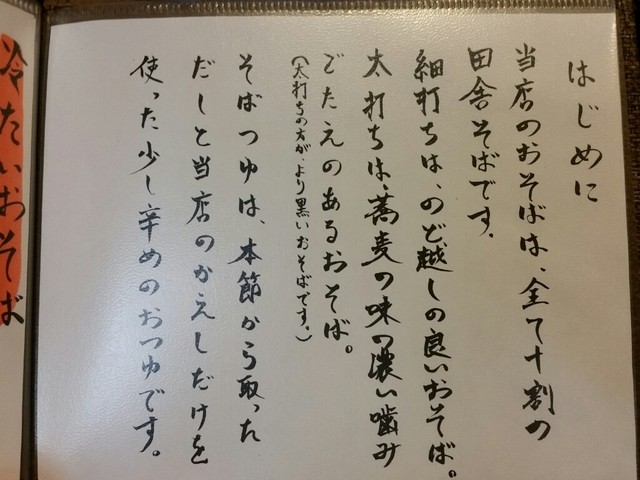 はじめに
当店のおそばは、全て十割の
田舎そばです。
細打ちは、のど越しの良いおそば。
太打ちは、蕎麦の味の濃い噛み
ごたえのあるおそば。
(太打ちの方が、より黒いおそばです。)
そばつゆは、本節から取った
だしと当店のかえしだけを
使った少し辛めのおつゆです。
冷たいおそば